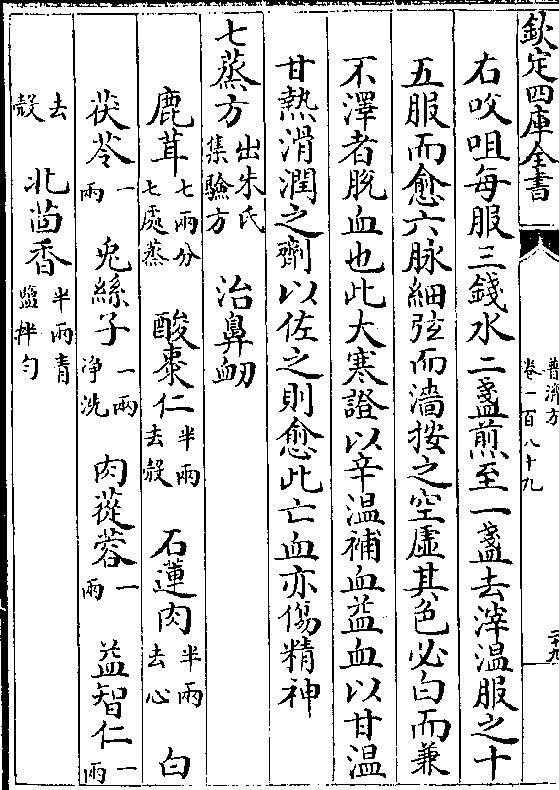 欽定四庫全書
普濟方
卷一百八十九
二十九
右㕮咀每服三錢水二盞煎至一盞去滓溫服之十
五服而愈六脉細弦而濇按之空虛其色必白而兼
不澤者脫血也此大寒證以辛溫補血益血以甘溫
甘熱滑潤之劑以佐之則愈此亡血亦傷精神
七蒸方出朱氏集驗方 治鼻衂
鹿茸七兩分七處蒸 酸棗仁半兩去殼 石蓮肉半兩去心 白
茯苓一兩 兎絲子一兩浄洗 肉蓯蓉一兩 益智仁一兩
去殼 北茴香半兩青鹽拌勻